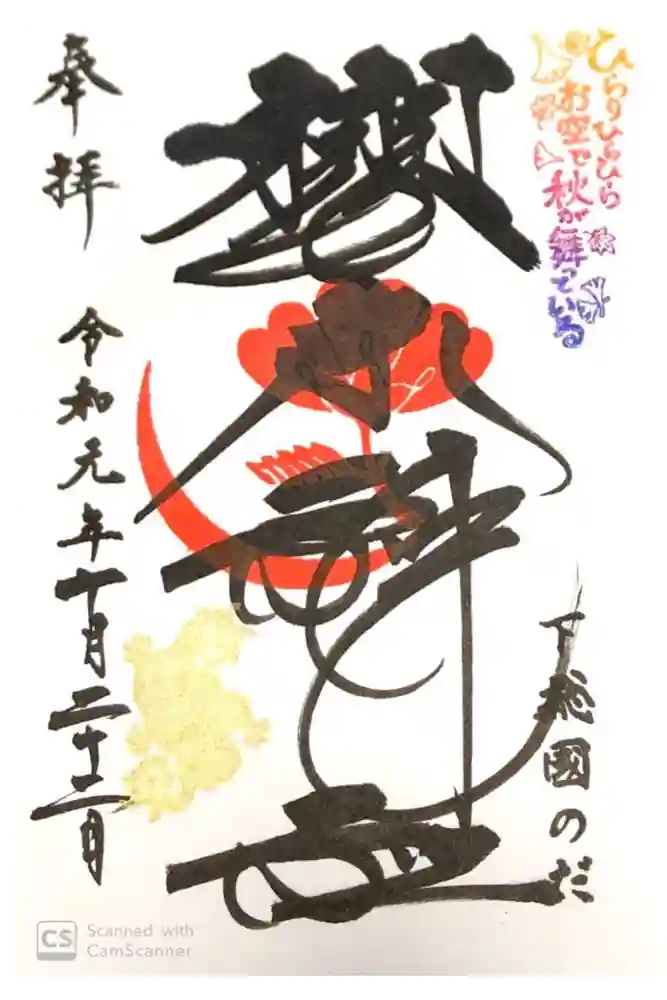 ひらりひらひら
お空で
秋が舞っている
下総國のだ
櫻木神社
奉拝
令和元年十月二十二日
CS Scanned with
CamScanner